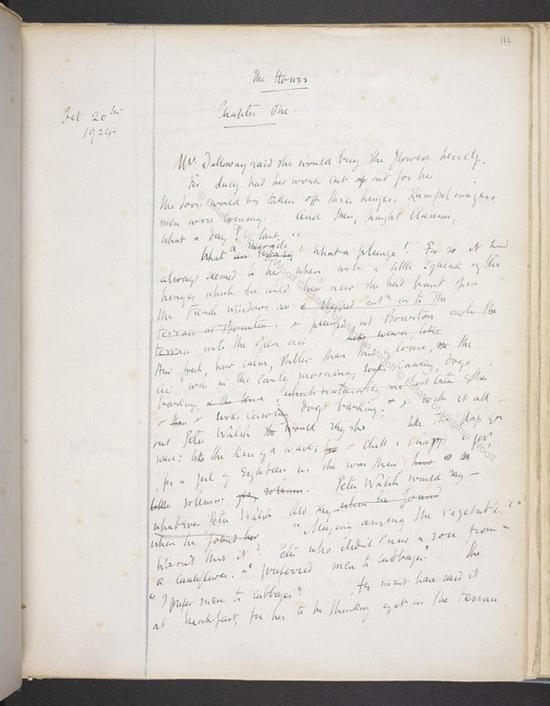 The Hours
Chapter One.
Oct 20th
1924
Mrs Dalloway said she would buy the flowers herself.
For Lucy had her work cut out for her.
The doors would be taken off their hinges; Rumpelmayers
men were coming. And then, thought Clarissa,
What a day!
What a miracle! What a plunge! For so it had
always seemed to her when, with a little squeak of the
hinges, which she could hear now, she had burst open
the French windows & stepped out on to the
terrace at Bourton. & plunged, at Bourton onto the
terrace into the open air. like waves like
How fresh, how calm, stiller than this of course, the
air was in the early morning; rooks cawing, dogs
barking,
rooks cawing dogs barking; & with it all
Peter Walsh would say she like the flap of a
wave; like the kiss of a wave; chill & sharp & yet
(for a girl of eighteen as she was then)
solemn. Peter Walsh would say
whatever Peter Walsh did say when he found
when he found her "Musing among the vegetables?"
Wasn't that it? Peter who didn't know a rose from
a cauliflower. "I preferred men to cabbages". He
"I prefer men to cabbages". He must have said it
at breakfast, for her to be thinking of it on the terrace